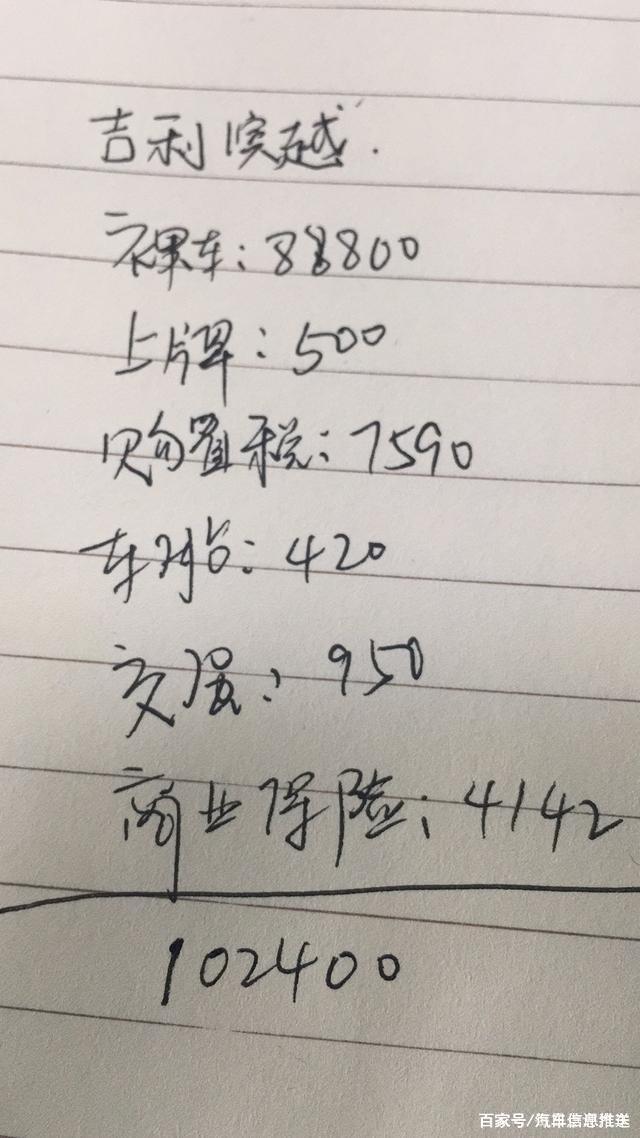 吉利缤越.
裸车:88800
上牌:500
购置税:7590
车船:420
交强:950
商业保险:4142
102400
百家号/汽车信息推送